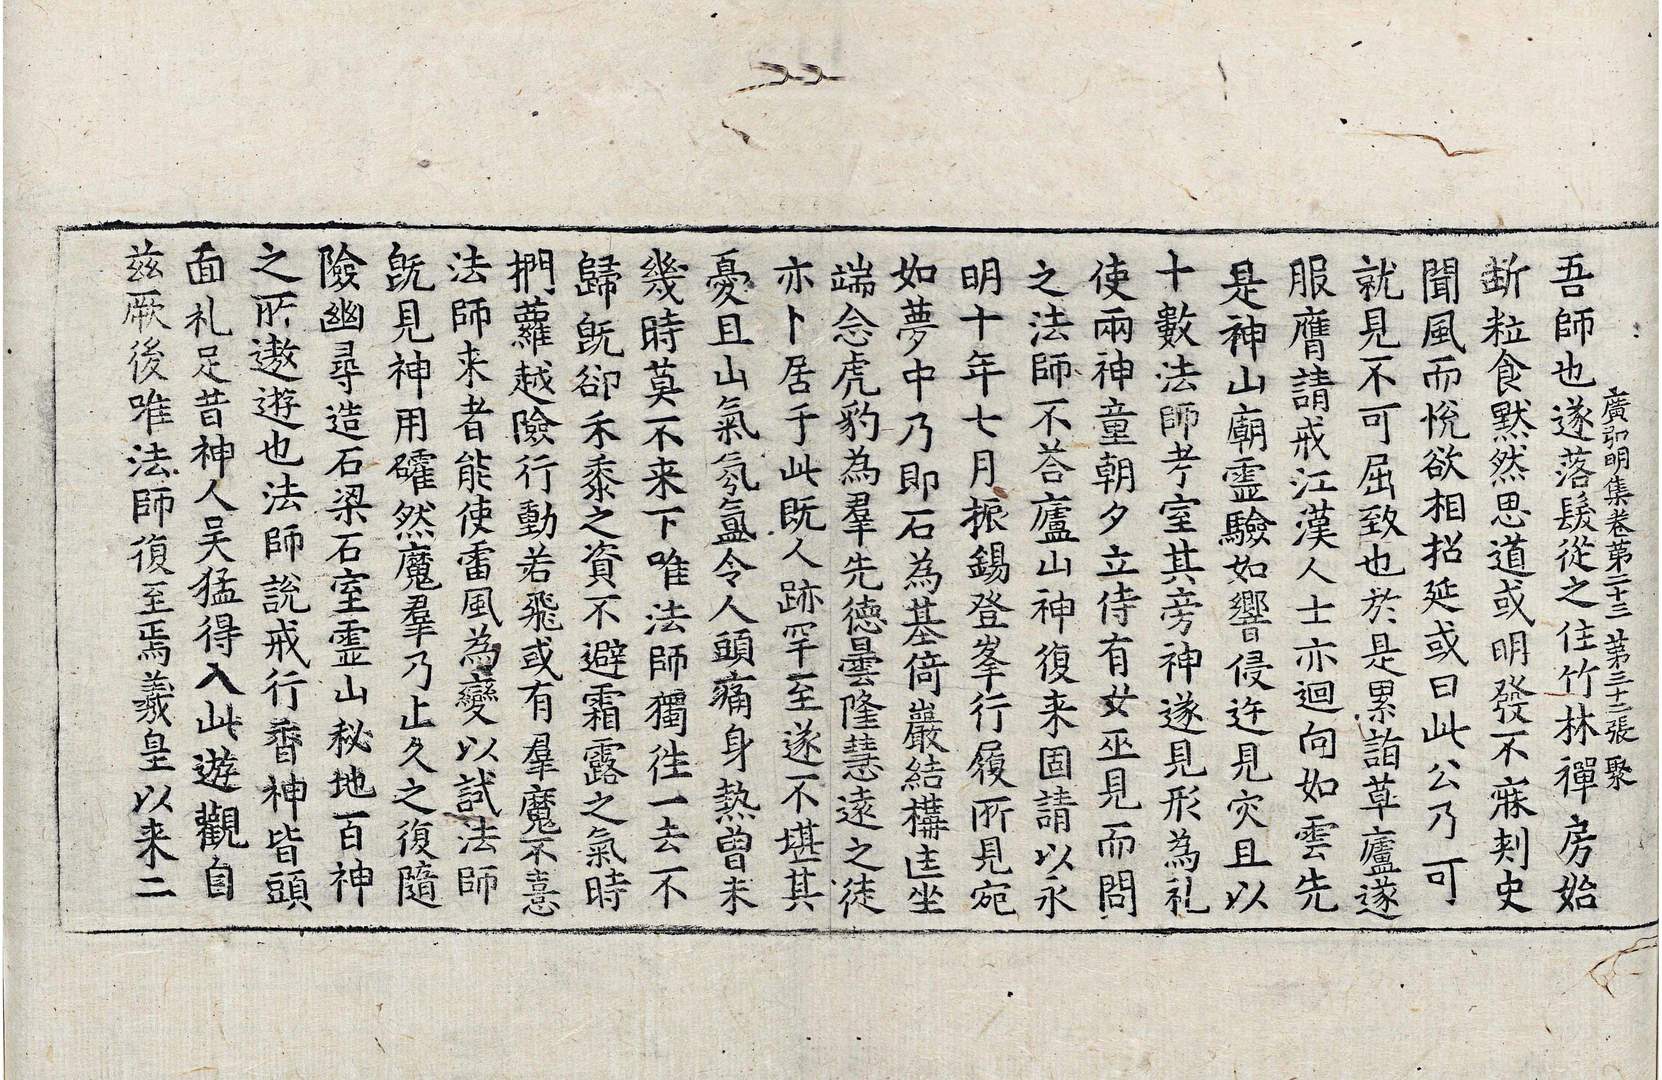 廣弘明集卷第二十三 第三十二張 聚
吾師也遂落髮從之住竹林禪房始
斷粒食默然思道或明發不寐刾史
聞風而悅欲相招延或曰此公乃可
就見不可屈致也於是累詣草廬遂
服膺請戒江漢人士亦迴向如雲先
是神山廟靈驗如響侵迕見灾且以
十數法師考室其旁神遂見形為礼
使兩神童朝夕立侍有女巫見而問
之法師不荅廬山神復来固請以永
明十年七月振錫登峯行履所見宛
如夢中乃即石為基倚巖結構匡坐
端念虎豹為羣先德曇隆慧遠之徒
亦卜居于此既人跡罕至遂不堪其
憂且山氣氛氳令人頭痛身熱曾未
幾時莫不来下唯法師獨往一去不
歸既卻禾黍之資不避霜露之氣時
捫蘿越險行動若飛或有羣魔不憙
法師来者能使雷風為變以試法師
既見神用確然魔羣乃止久之復隨
險幽尋造石梁石室靈山秘地百神
之所遨遊也法師說戒行香神皆頭
面礼足昔神人吴猛得入此遊觀自
茲厥後唯法師復至焉羲皇以来二